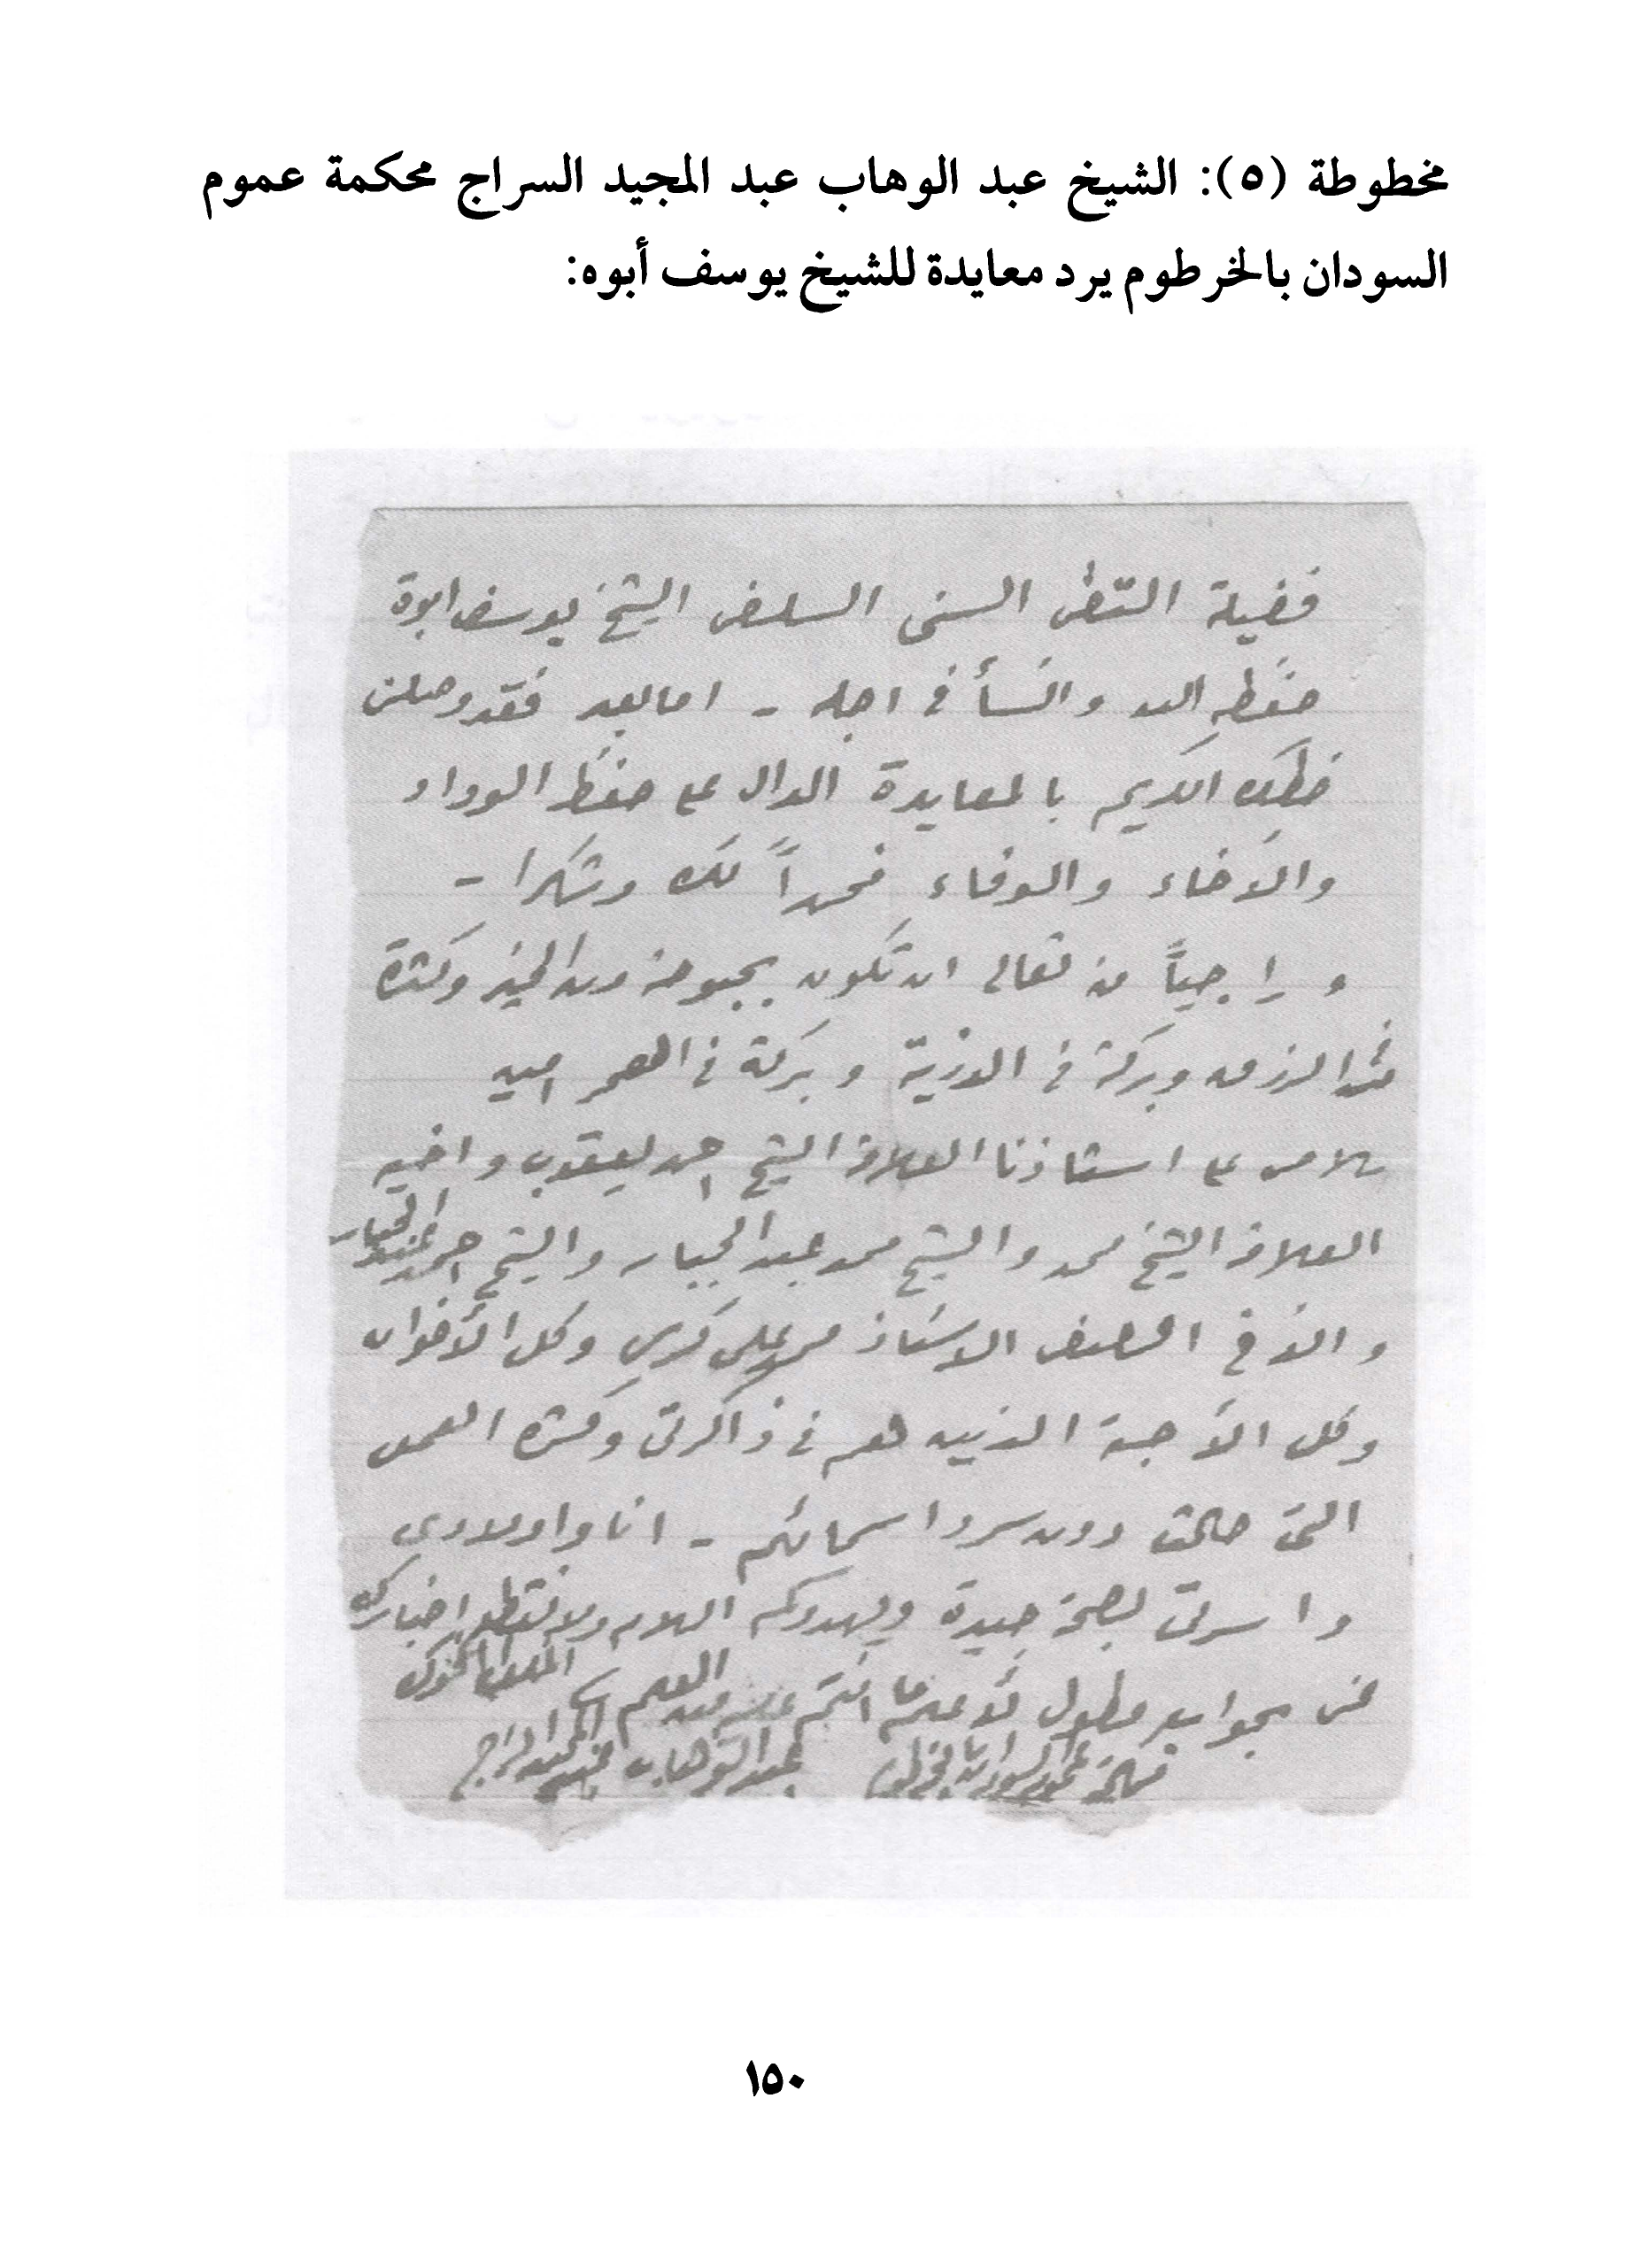 مخطوطة (٥): الشيخ عبد الوهاب عبد المجيد السراج محكمة عموم
السودان بالخرطوم يرد معايدة للشيخ يوسف أبوه:
فضيلة التقى السنى السلفى الشيخ يوسف ابوة
حفظه الله وانسأ فى اجله - اما بعد فقد وصلنى
خطك الكريم بالمعايدة الدال على حفظ الوداد
والأخاء والوفاء فحمداً لك وشكرا -
و راجياً من تعالى ان تكون بحبوحة من الخير وكثرة
من الرزق وبركة فى الذرية وبركة فى العمر امين
سلامى على استاذنا العلامة الشيخ احمد يعقوب واخيه
العلامة الشيخ محمد والشيخ محمد عبد الجبار والشيخ احمد عبد الجبار
والأخ الاستاذ محمد على كردى وكل الأخوان
وكل الأحبة الذين هم فى ذاكرتى وكثرة العمل
التى حالت دون سرد اسمائهم - انا واولادى
واسرتى بصحة جيدة ويهدوكم السلام ولا تقطع اخبارك
عنى بجواب مطول لأعلم ما انتم عليه من العلم
عبد الوهاب عبد المجيد السراج
محكمة عموم السودان بالخرطوم
١٥٠